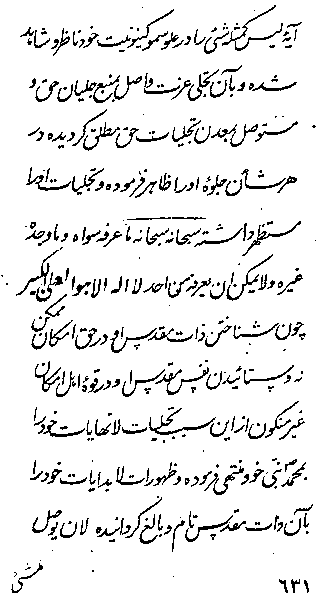 آیهٔ لیس کمثله شئ را در علو سمو کینونیت خود ناظر و شاهد
شده و بآن تجلی عزت واصل بمنبع جلیان حق و
متوصل بمعدن تجلیات حق مطلق گردیده در
هر شأن جلوهٔ او را ظاهر فرموده و تجلیات او را
مستظهر داشته سبحانه سبحانه ما عرفه سواه و ما وحده
غیره و لا یمکن ان یعرفه من احد لا اله الا هو العلی الکبیر
چون شناختن ذات مقدس او در حق امکان ممکن
نه و ستائیدن نفس مقدس او در قوهٔ اهل امکان
غیر متکون از این سبب تجلیات لا نهایات خود را
بمحمد ص نبی خود منتهی فرموده و ظهورات لا بدایات خود را
بآن ذات مقدس تام و بالغ گردانیده لان یوصل
۶۳۱